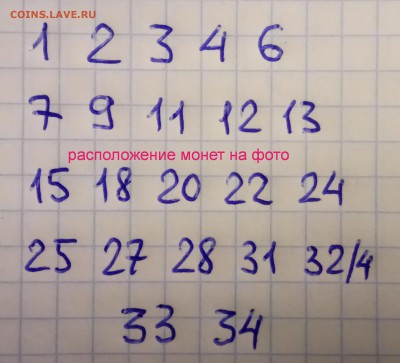 COINS.LAVE.RU
1 2 3 4 6
7 9 11 12 13
расположение монет на фото
15 18 20 22 24
25 27 28 31 32/4
33 34